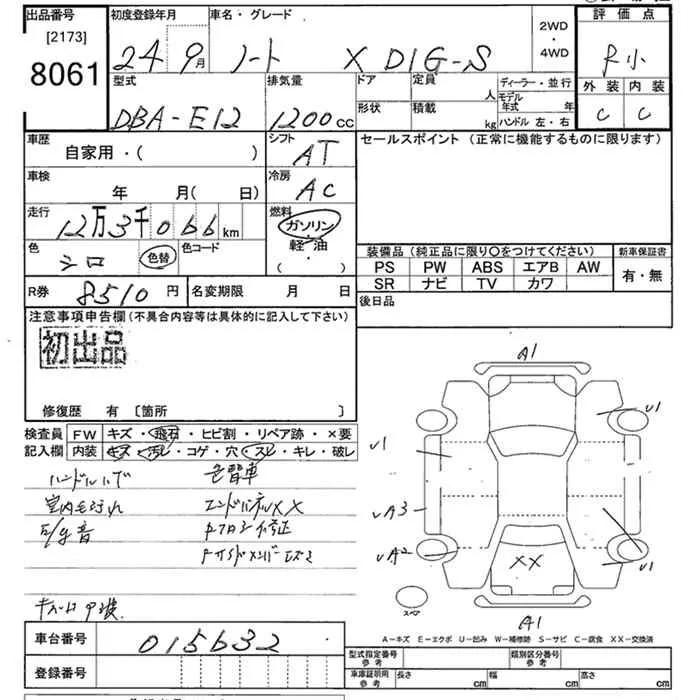 出品番号 初度登録年月 車名・グレード 2WD ・ 4WD 評価点
[2173]
8061
24 9月 ノート X DIG-S R小
型式 排気量 ドア 定員 人 ディーラー・並行 外装 内装
DBA-E12 1200cc 形状 積載 kg モデル年式 年 ハンドル 左・右 C C
車歴 シフト セールスポイント (正常に機能するものに限ります)
自家用・( ) AT
車検 冷房
年 月( 日) AC
走行 燃料
12万3千066km ガソリン
軽・油
( ・ )
色 色替 色コード
シロ
装備品 (純正品に限り〇をつけてください) 新車保証書
PS PW ABS エアB AW 有・無
SR ナビ TV カワ
R券 8510円 名変期限 月 日 後日品
注意事項申告欄(不具合内容等は具体的に記入して下さい)
初出品
修復歴 有 〔箇所 〕
検査員 FW キズ・飛石・ヒビ割・リペア跡・×要
記入欄 内装 キズ・汚レ・コゲ・穴・スレ・キレ・破レ
色替車
エンドパネルXX
A1
U1
U1
A3
A2
U1
XX
A1
スペア
A-キズ E-エクボ U-凹み W-補修跡 S-サビ C-腐食 XX-交換済
車台番号 015632
登録番号
型式指定番号 参考 類別区分番号 参考
車庫証明用 参考 長さ cm 幅 cm 高さ cm